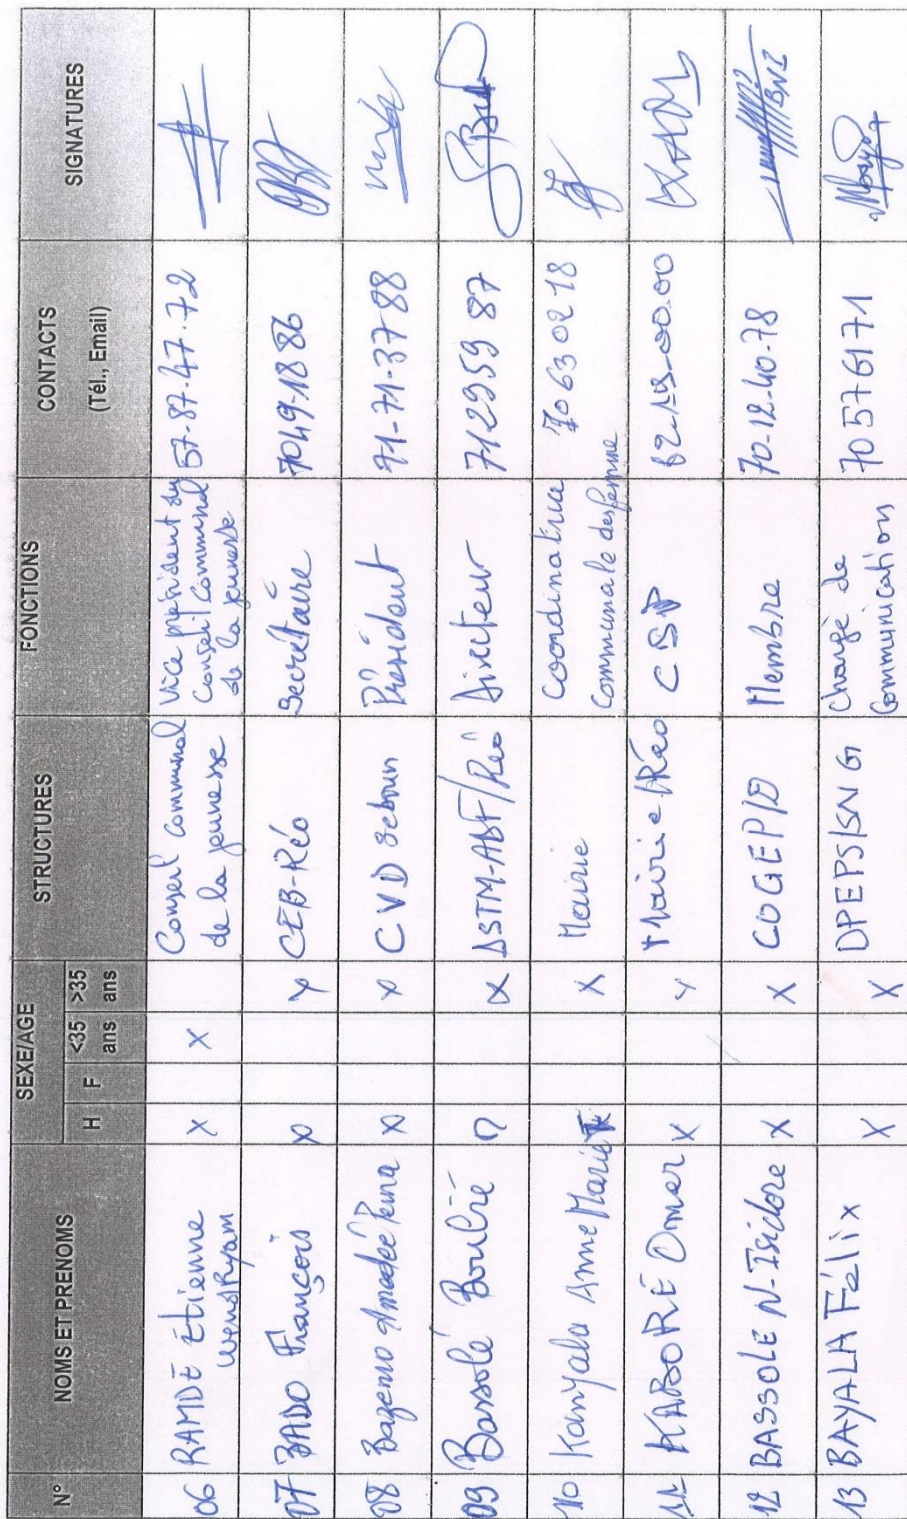 N° NOMS ET PRENOMS SEXE/AGE STRUCTURES FONCTIONS CONTACTS SIGNATURES
H F <35 ans >35 ans (Tél., Email)
06 RAMDE Etienne WendRyam X X Conseil Communal de la jeunesse Vice président du Conseil Communal de la jeunesse 57-87-47-72
07 BADO François X X CEB-Réo Secrétaire 70491886
08 Bazemo Amadée X X CVD Président 71-71-3788
09 Bassolé Boulié X DSTM-ABF/Réo Directeur 71295987
10 Kanyala Anne Marie X Mairie Coordinatrice Communale des femme 70630218
11 KABORE Omar X X Mairie/Réo
12 BASSOLE N-Isidore X X COGEP Membre 70-12-40-78
13 BAYALA Félix X X DPEPS/SNG Chargé de Communication 70576171